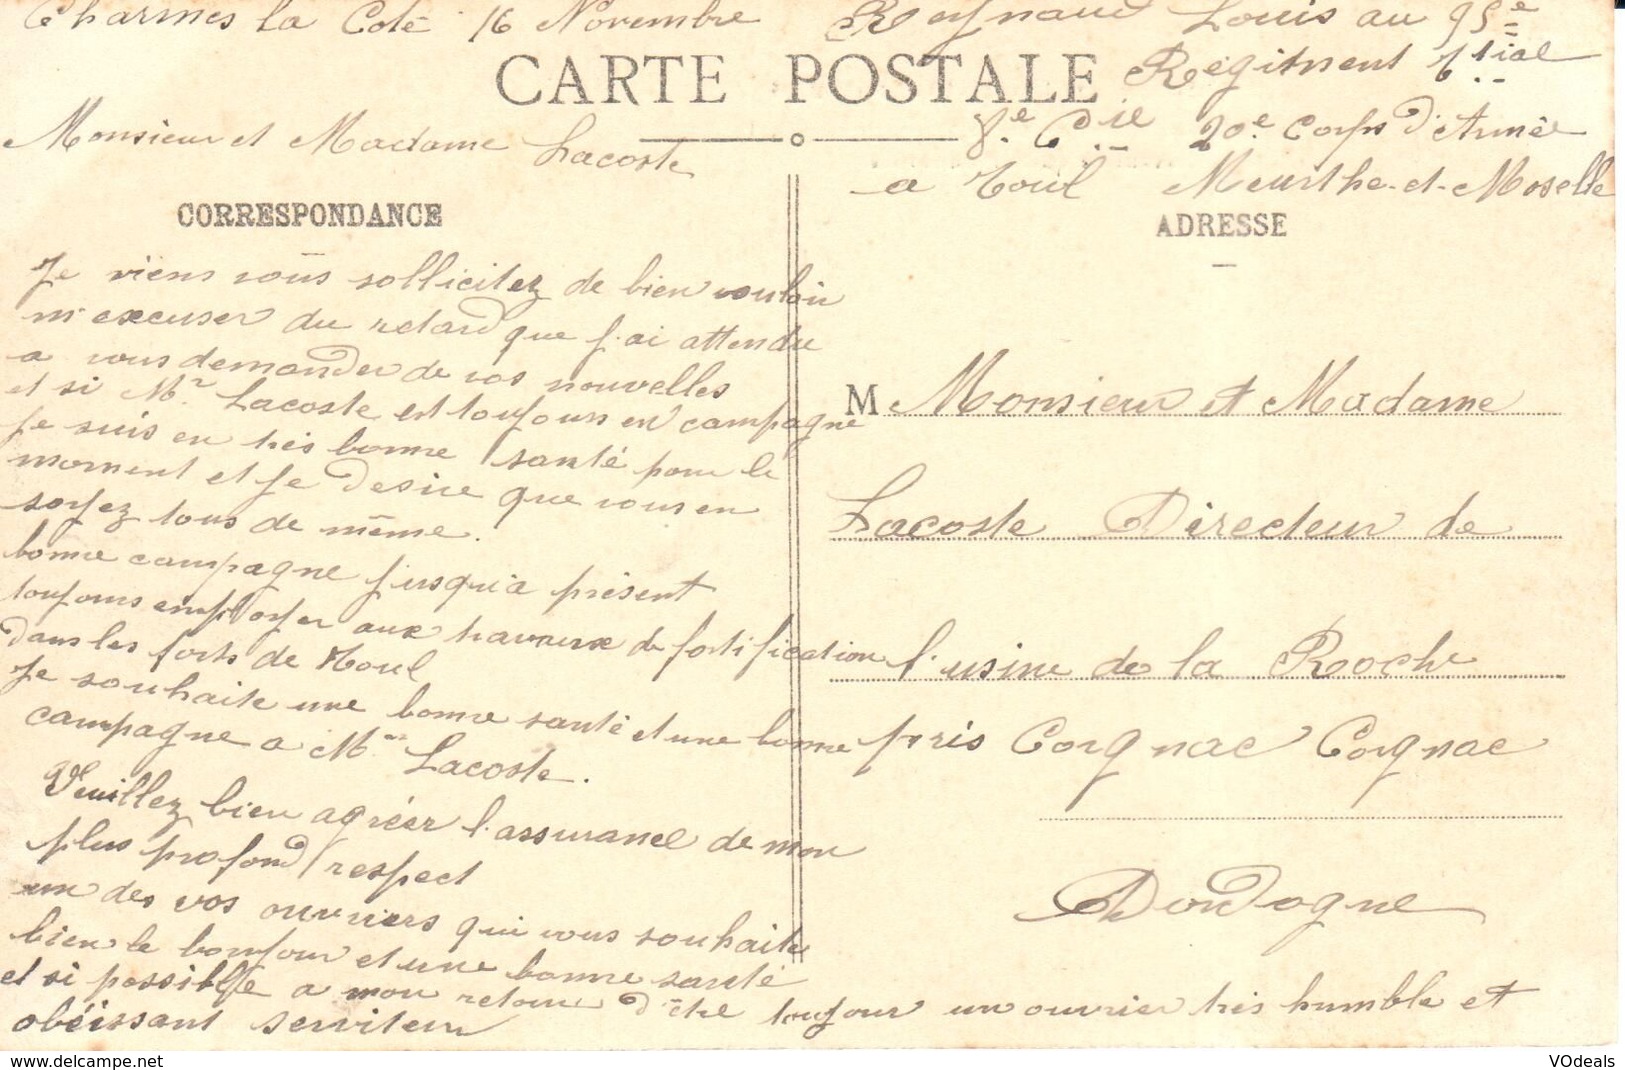 Charmes la Cote 16 Novembre
Reynaud Louis au 95e
Regitment t.rial
8.e Cie 20.e Corps d'Armée
a Toul Meurthe-et-Moselle
CARTE POSTALE
Monsieur et Madame Lacoste
CORRESPONDANCE
Je viens vous sollicitez de bien vouloir
m'excuser du retard que j'ai attendu
a vous demander de vos nouvelles
et si Mr Lacoste est toujours en campagne
je suis en très bonne santé pour le
moment et je desire que vous en
soyez tous de même.
bonne campagne jusqu'a présent
toujours employer aux travaux de fortification
dans les forts de Toul
Je souhaite une bonne santé et une bonne
campagne a Mr Lacoste.
Veuillez bien agréer l'assurance de mon
plus profond respect
un des vos ouvriers qui vous souhaite
bien le bonjour et une bonne santé
et si possible a mon retour d'être toujour un ouvrier très humble et
obéissant serviteur
ADRESSE
M Monsieur et Madame
Lacoste Directeur de
l'usine de la Roche
pris Corgnac Corgnac
Dordogne
VOdeals
https://www.delcampe.net